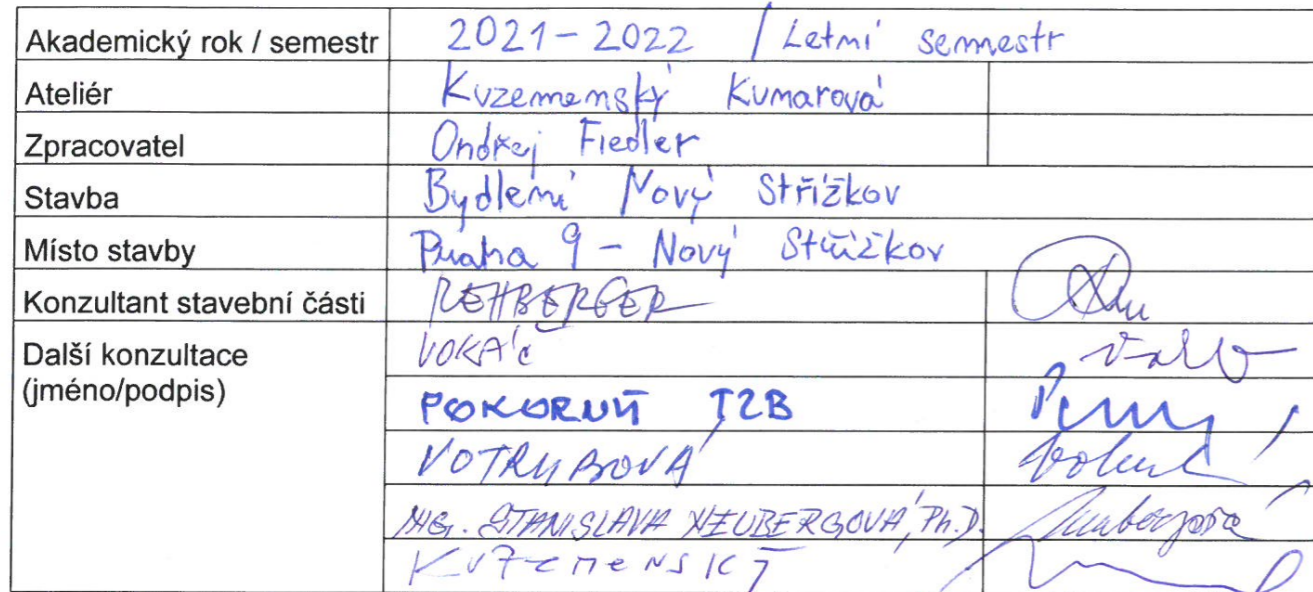 Akademický rok / semestr 2021-2022 / Letní semestr
Ateliér Kuzemenský Kunarová
Zpracovatel Ondřej Fiedler
Stavba Bydlení Nový Střížkov
Místo stavby Praha 9 - Nový Střížkov
Konzultant stavební části REHBERGER
Další konzultace VOKÁČ
(jméno/podpis) POKORNÝ TZB
VOTRUBOVÁ
ING. STANISLAVA NEUBERGOVÁ, Ph.D. Neubergová
KUZEMENSKÝ